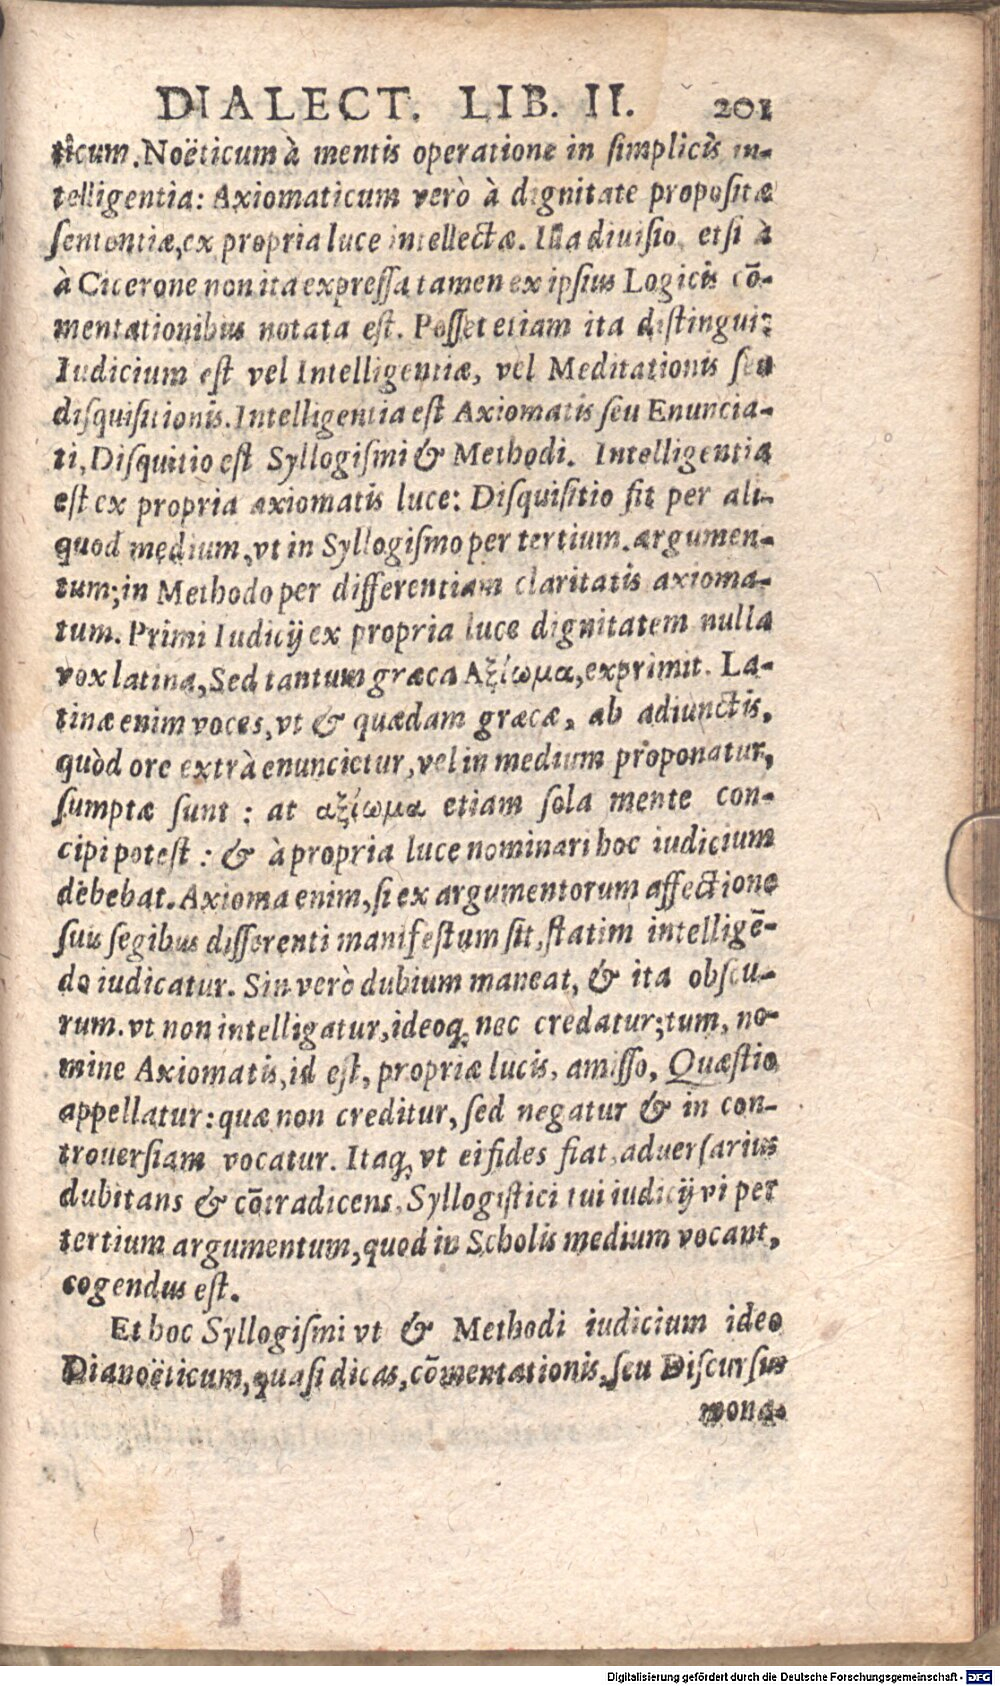 DIALECT. LIB. II. 201
ticum. Noëticum à mentis operatione in simplicis in-
telligentia: Axiomaticum verò à dignitate propositæ
sententiæ, ex propria luce intellectæ. Illa diuisio, etsi à
à Cicerone non ita expressa tamen ex ipsius Logicis cō-
mentationibus notata est. Posset etiam ita distingui:
Iudicium est vel Intelligentiæ, vel Meditationis seu
disquisitionis. Intelligentia est Axiomatis seu Enuncia-
ti, Disquitio est Syllogismi & Methodi. Intelligentia
est ex propria axiomatis luce: Disquisitio fit per ali-
quod medium, vt in Syllogismo per tertium. argumen-
tum; in Methodo per differentiam claritatis axioma-
tum. Primi Iudicij ex propria luce dignitatem nulla
vox latina, Sed tantum græca Αξίωμα, exprimit. La-
tinæ enim voces, vt & quædam græcæ, ab adiunctis,
quòd ore extrà enuncietur, vel in medium proponatur,
sumptæ sunt: at αξίωμα etiam sola mente con-
cipi potest: & à propria luce nominari hoc iudicium
debebat. Axioma enim, si ex argumentorum affectione
suis segibus differenti manifestum sit, statim intelligē-
do iudicatur. Sin verò dubium maneat, & ita obscu-
rum. vt non intelligatur, ideoq; nec credatur; tum, no-
mine Axiomatis, id est, propriæ lucis, amisso, Quæstio
appellatur: quæ non creditur, sed negatur & in con-
trouersiam vocatur. Itaq; vt ei fides fiat, aduersarius
dubitans & cōtradicens, Syllogistici tui iudicij vi per
tertium argumentum, quod in Scholis medium vocant,
cogendus est.
Et hoc Syllogismi vt & Methodi iudicium ideo
Dianoëticum, quasi dicas, cōmentationis, seu Discursus
nona-
Digitalisierung gefördert durch die Deutsche Forschungsgemeinschaft - DFG